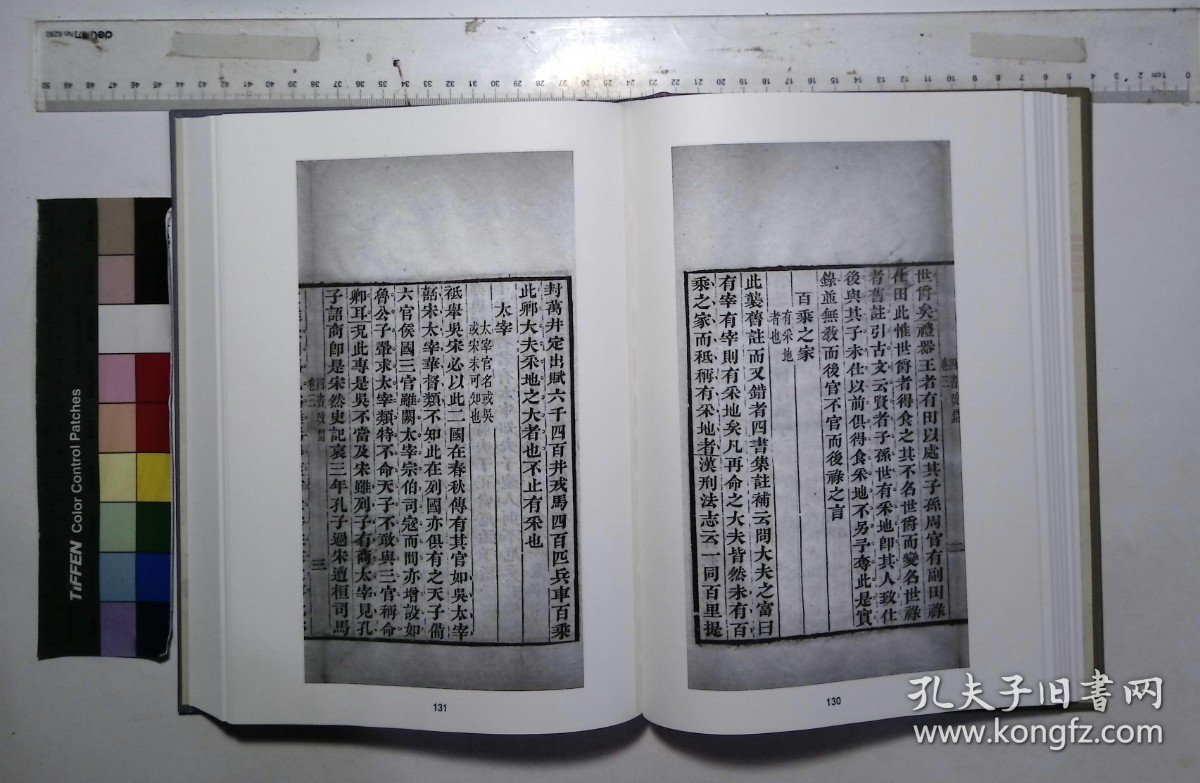 世爵矣禮器王者有田以處其子孫周官有副田祿
仕田此惟世爵者得食之其不名世爵而變名世祿
者舊註引古文云賢者子孫世有采地卽其人致仕
後與其子未仕以前俱得食采地不另予奪此是實
錄並無教而後官不官而後祿之言
百乘之家
有采地
者也
此襲舊註而又錯者四書集註補云問大夫之富曰
有宰有宰則有采地矣凡再命之大夫皆然未有百
乘之家而祗稱有采地者漢刑法志云一同百里提
130
封萬井定出賦六千四百井戎馬四百匹兵車百乘
此卿大夫采地之大者也不止有采也
太宰
太宰官名或吳
或宋未可知也
祗舉吳宋必以此二國在春秋傳有其官如吳太宰
嚭宋太宰華督類不知此在列國亦俱有之天子備
六官侯國三官雖闕太宰宗伯司寇而間亦增設如
魯公子翬求太宰類特不命天子不敢與三官稱命
卿耳況此專是吳不當及宋雖列子有商太宰見孔
子語商卽是宋然史記哀三年孔子過宋遭桓司馬
四書改錯
卷三
三
131
TIFFEN Color Control Patches
deli No 6250
孔夫子旧書网
www.kongfz.com